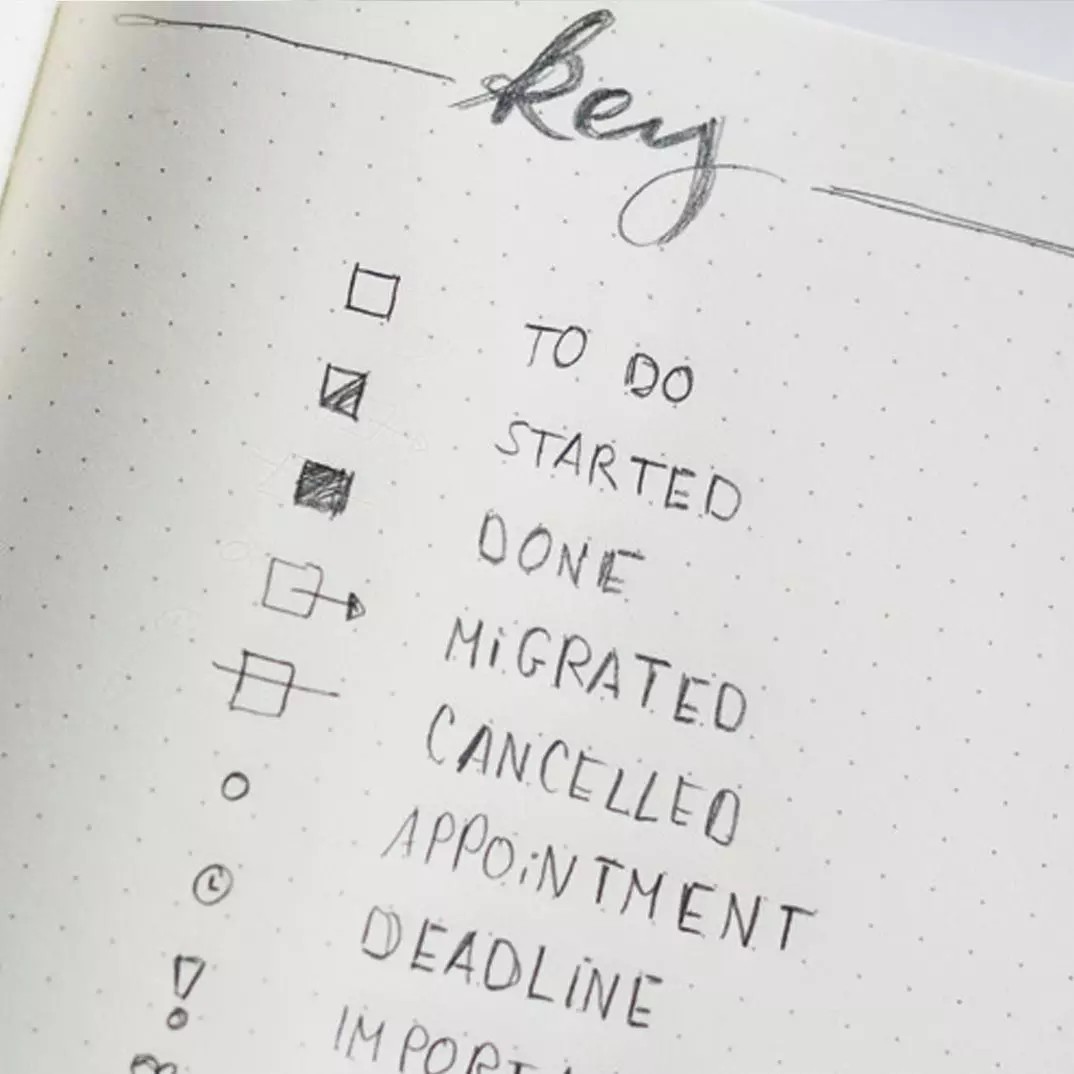 key
TO DO
STARTED
DONE
MiGRATED
CANCELLED
APPOiNTMENT
DEADLiNE